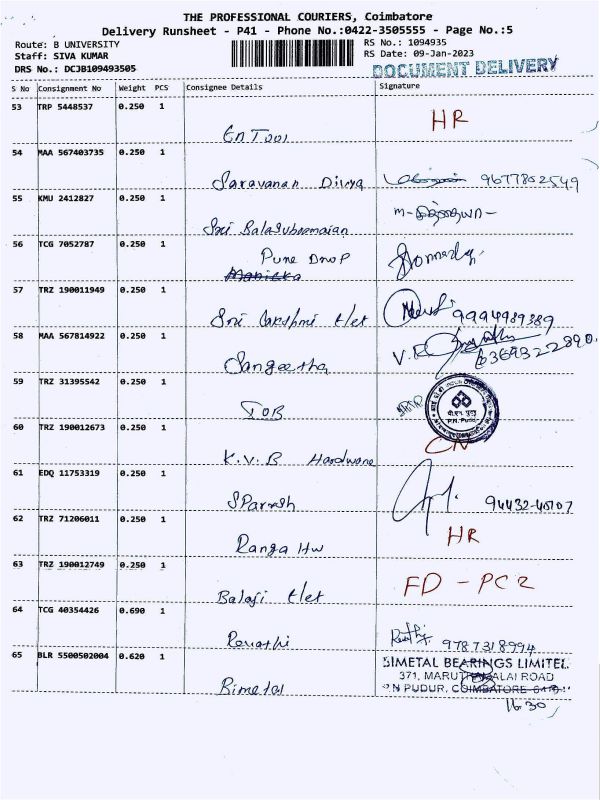 THE PROFESSIONAL COURIERS, Coimbatore
Delivery Runsheet - P41 - Phone No.:0422-3505555 - Page No.:5
Route: B UNIVERSITY RS No.: 1094935
Staff: SIVA KUMAR RS Date: 09-Jan-2023
DRS No.: DCJB109493505 DOCUMENT DELIVERY
S No Consignment No Weight PCS Consignee Details Signature
53 TRP 5448537 0.250 1
HR
54 MAA 567403735 0.250 1
Saravanan Divya 9677802549
55 KMU 2412827 0.250 1
Sri Balasubramaian
56 TCG 7052787 0.250 1
Pune Drop
57 TRZ 190011949 0.250 1
Sri Lakshmi 9994989389
58 MAA 567814922 0.250 1
Sangeetha 6369322890
59 TRZ 31395542 0.250 1
IOB
60 TRZ 190012673 0.250 1
CN
K.V.B Hardware
61 EDQ 11753319 0.250 1
94432-40107
62 TRZ 71206011 0.250 1
Ranga HW HR
63 TRZ 190012749 0.250 1
Balaji FD - PC2
64 TCG 40354426 0.690 1
Revathi 9787318994
65 BLR 5500502004 0.620 1
BIMETAL BEARINGS LIMITED
371, MARUTHAMALAI ROAD
Bimetal P N PUDUR, COIMBATORE
16.30